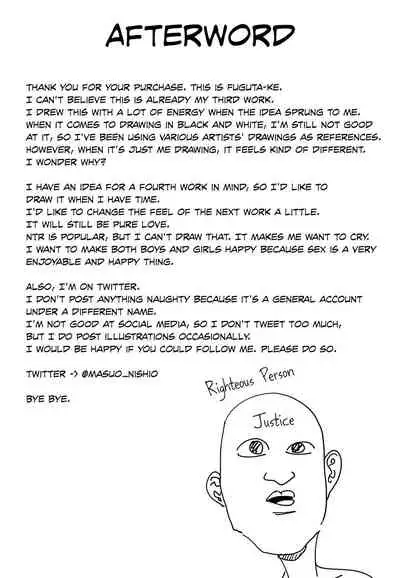 AFTERWORD
THANK YOU FOR YOUR PURCHASE. THIS IS FUGUTA-KE.
I CAN'T BELIEVE THIS IS ALREADY MY THIRD WORK.
I DREW THIS WITH A LOT OF ENERGY WHEN THE IDEA SPRUNG TO ME.
WHEN IT COMES TO DRAWING IN BLACK AND WHITE, I'M STILL NOT GOOD
AT IT, SO I'VE BEEN USING VARIOUS ARTISTS' DRAWINGS AS REFERENCES.
HOWEVER, WHEN IT'S JUST ME DRAWING, IT FEELS KIND OF DIFFERENT.
I WONDER WHY?
I HAVE AN IDEA FOR A FOURTH WORK IN MIND, SO I'D LIKE TO
DRAW IT WHEN I HAVE TIME.
I'D LIKE TO CHANGE THE FEEL OF THE NEXT WORK A LITTLE.
IT WILL STILL BE PURE LOVE.
NTR IS POPULAR, BUT I CAN'T DRAW THAT. IT MAKES ME WANT TO CRY.
I WANT TO MAKE BOTH BOYS AND GIRLS HAPPY BECAUSE SEX IS A VERY
ENJOYABLE AND HAPPY THING.
ALSO, I'M ON TWITTER.
I DON'T POST ANYTHING NAUGHTY BECAUSE IT'S A GENERAL ACCOUNT
UNDER A DIFFERENT NAME.
I'M NOT GOOD AT SOCIAL MEDIA, SO I DON'T TWEET TOO MUCH,
BUT I DO POST ILLUSTRATIONS OCCASIONALLY.
I WOULD BE HAPPY IF YOU COULD FOLLOW ME. PLEASE DO SO.
TWITTER -> @MASUO_NISHIO
BYE BYE.
Righteous Person
Justice